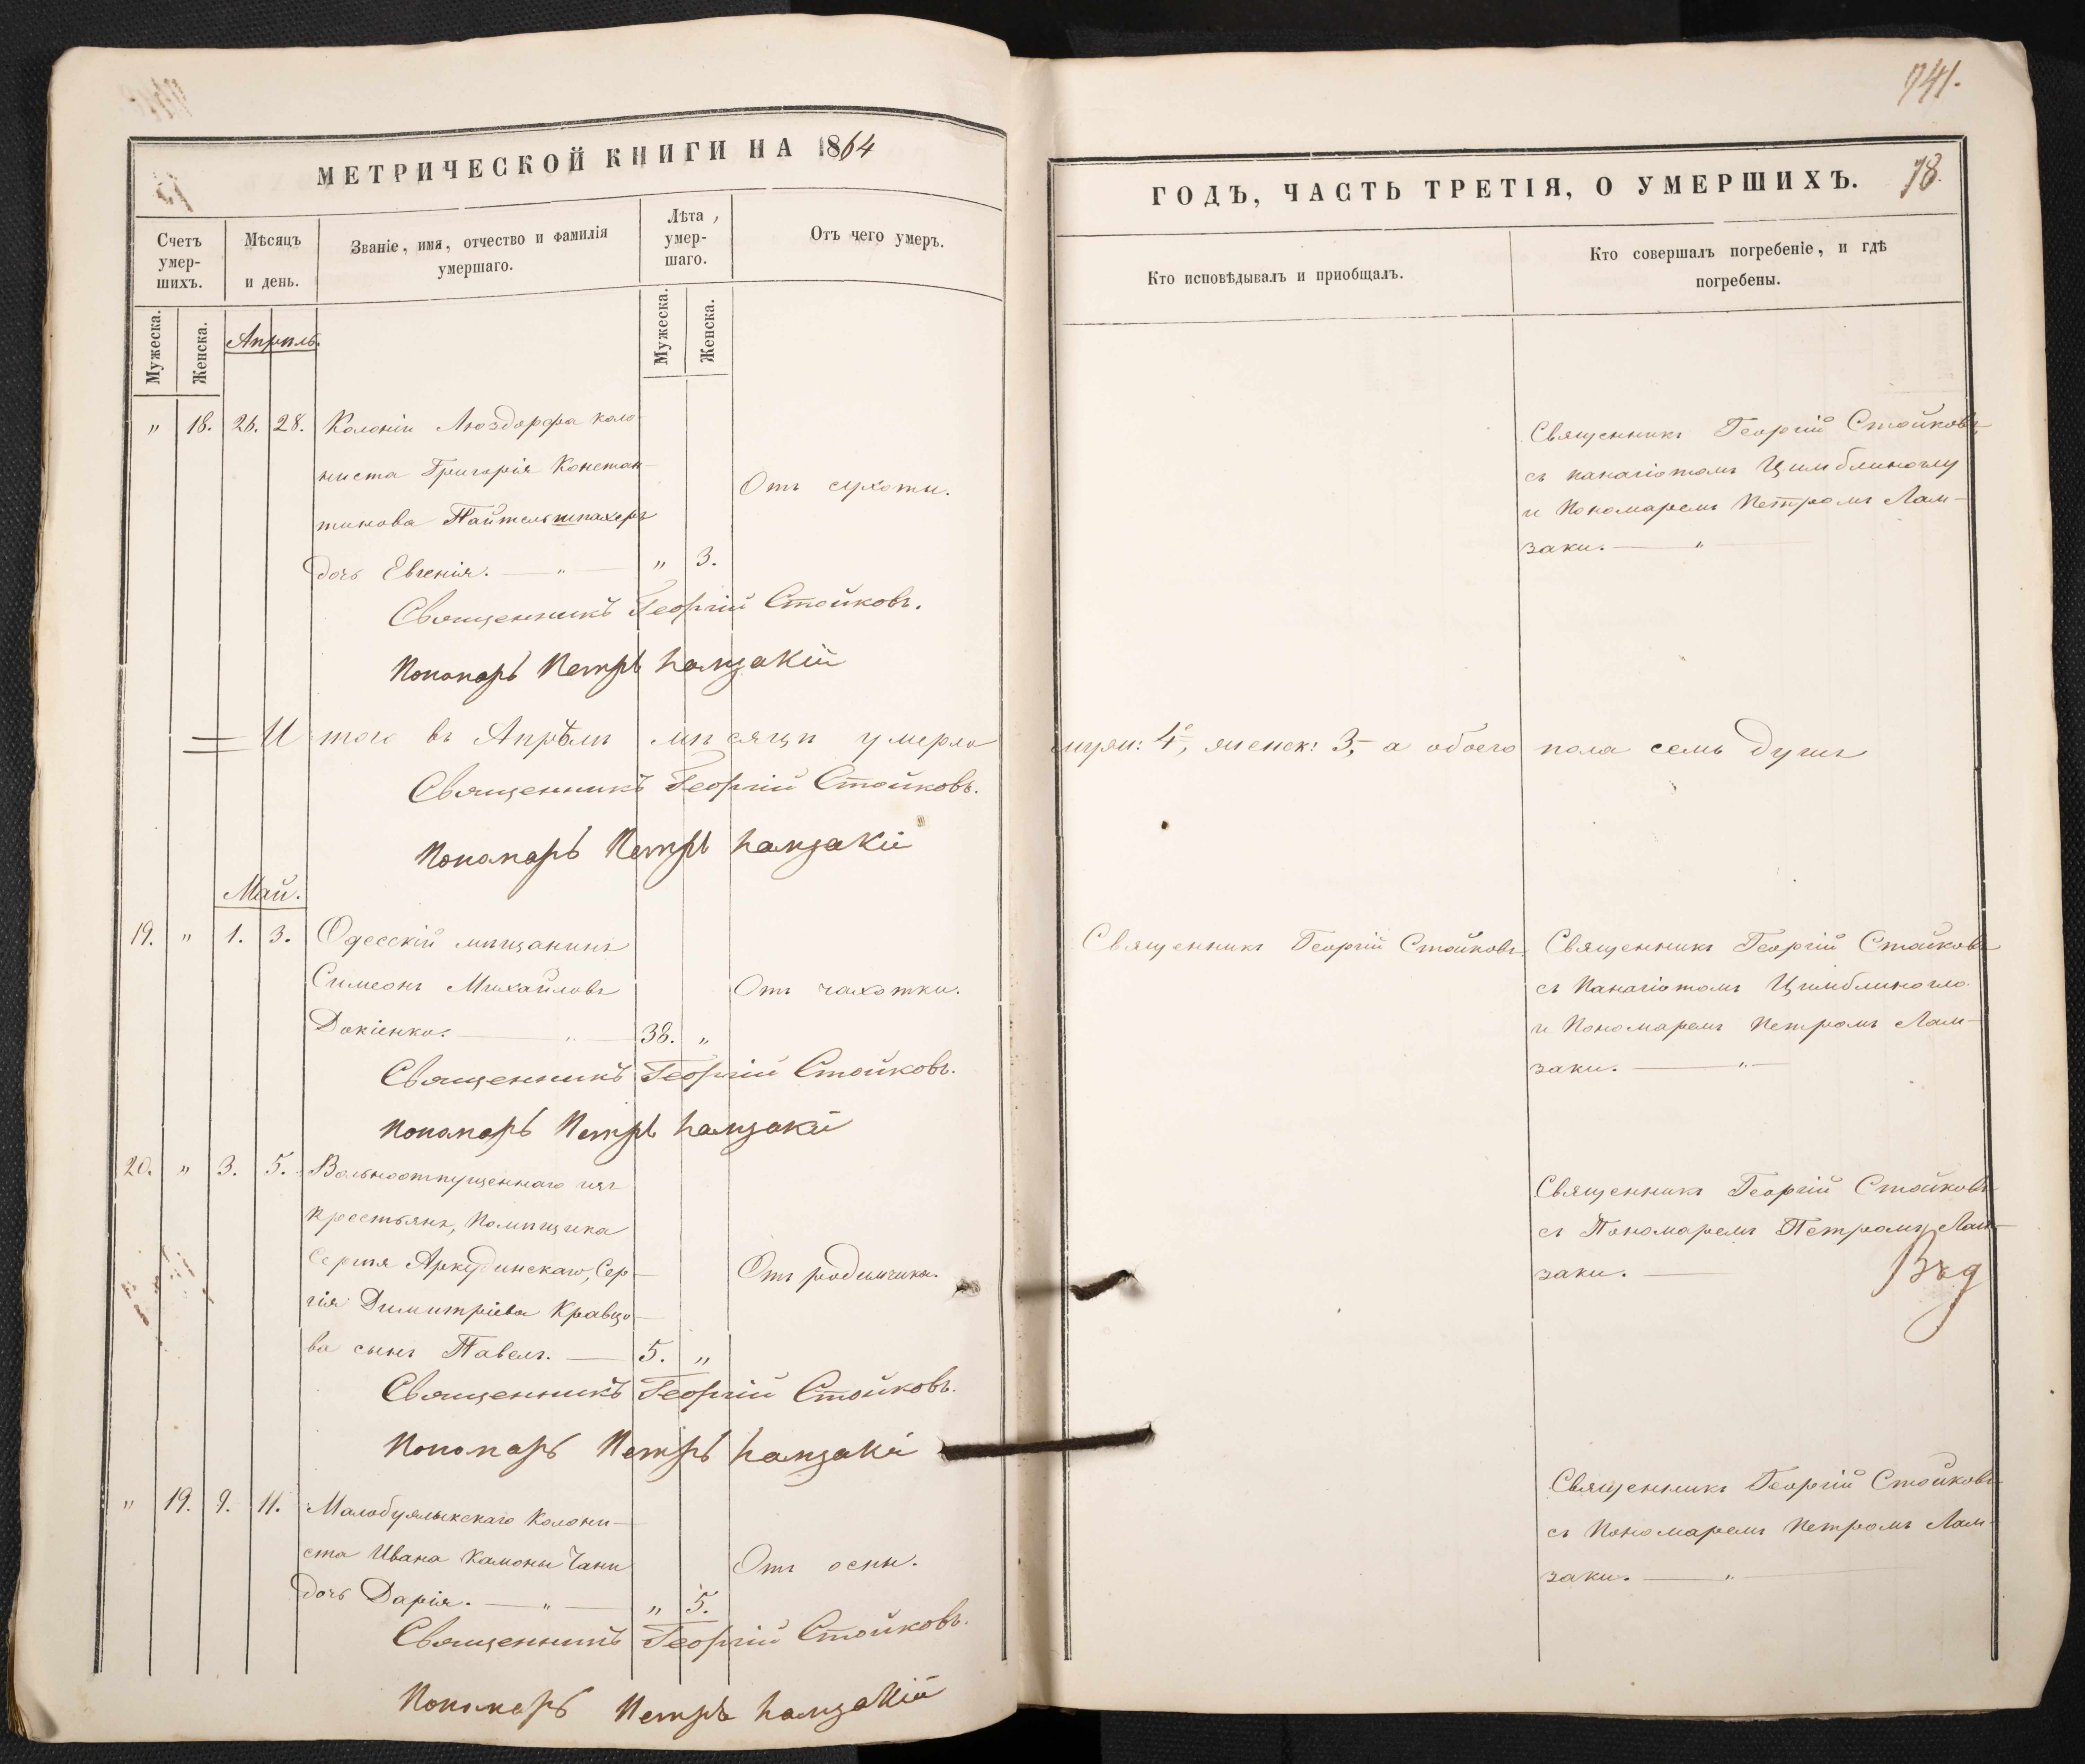 741.
МЕТРИЧЕСКОЙ КНИГИ НА 1864
ГОДЪ, ЧАСТЬ ТРЕТІЯ, О УМЕРШИХЪ.
78.
Счетъ умер-шихъ.
Мѣсяцъ и день.
Званіе, имя, отчество и фамилія умершаго.
Лѣта умер-шаго.
Отъ чего умеръ.
Кто исповѣдывалъ и приобщалъ.
Кто совершалъ погребеніе, и гдѣ погребены.
Мужеска.
Женска.
Мужеска.
Женска.
Апрѣль.
" 18. 26. 28. Колоніи Люздорфа коло-
ниста Григорія Констан-
тинова Пайтельшпахеръ
дочь Евгенія. — " — " 3.
Отъ сухоты.
Священникъ Георгій Стойковъ
съ панагіотомъ Цимблиноглу
и Пономаремъ Петромъ Лам-
заки. — " —
Священникъ Георгій Стойковъ.
Пономарь Петръ Ламзакій
Итого въ Апрѣлѣ мѣсяцѣ умерло муж: 4, женск: 3, а обоего пола семь душъ
Священникъ Георгій Стойковъ.
Пономарь Петръ Ламзакій
Май.
19. " 1. 3. Одесскій мѣщанинъ
Симеонъ Михайловъ
Докіенко. — " — 38. "
Отъ чахотки.
Священникъ Георгій Стойковъ
Священникъ Георгій Стойковъ
съ Панагіотомъ Цимблиногло
и Пономаремъ Петромъ Лам-
заки. — " —
Священникъ Георгій Стойковъ.
Пономарь Петръ Ламзакій
20. " 3. 5. Вольноотпущеннаго изъ
крестьянъ, Помѣщика
Сергія Аркудинскаго, Сер-
гія Димитріева Кравцо-
ва сынъ Павелъ. — 5. "
Отъ родимчика.
Священникъ Георгій Стойковъ
съ Пономаремъ Петромъ Лам-
заки. —
Священникъ Георгій Стойковъ.
Пономарь Петръ Ламзакій
" 19. 9. 11. Малобуялыкскаго Колони-
ста Ивана Камоны Чани
дочь Дарія. — " — " 5.
Отъ оспы.
Священникъ Георгій Стойковъ
съ Пономаремъ Петромъ Лам-
заки. — " —
Священникъ Георгій Стойковъ.
Пономарь Петръ Ламзакій